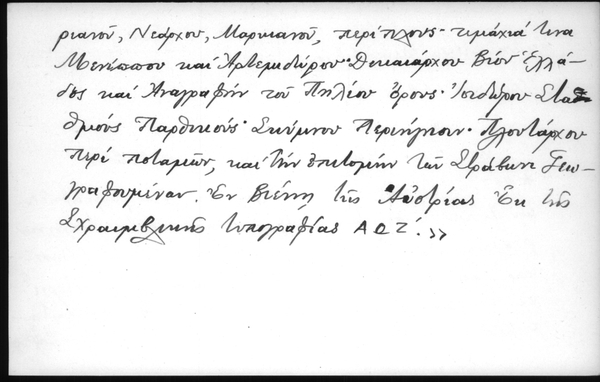 ριανοῦ, Νεάρχου, Μαρκιανοῦ, περίπλους· τεμάχιά τινα
Μενίππου καὶ Ἀρτεμιδώρου· Δικαιάρχου Βίον Ἑλλά-
δος καὶ Ἀναγραφὴν τοῦ Πηλίου ὄρους· Ἰσιδώρου Στα
θμοὺς Παρθικούς· Σκύμνου Περιήγησιν· Πλουτάρχου
Περὶ ποταμῶν, καὶ τὴν ἐπιτομὴν τῶν Στράβωνι Γεω-
γραφουμένων. Ἐν Βιέννῃ τῆς Αὐστρίας Ἐκ τῆς
Σχραιμβλικῆς τυπογραφίας ΑΩΖ΄.»